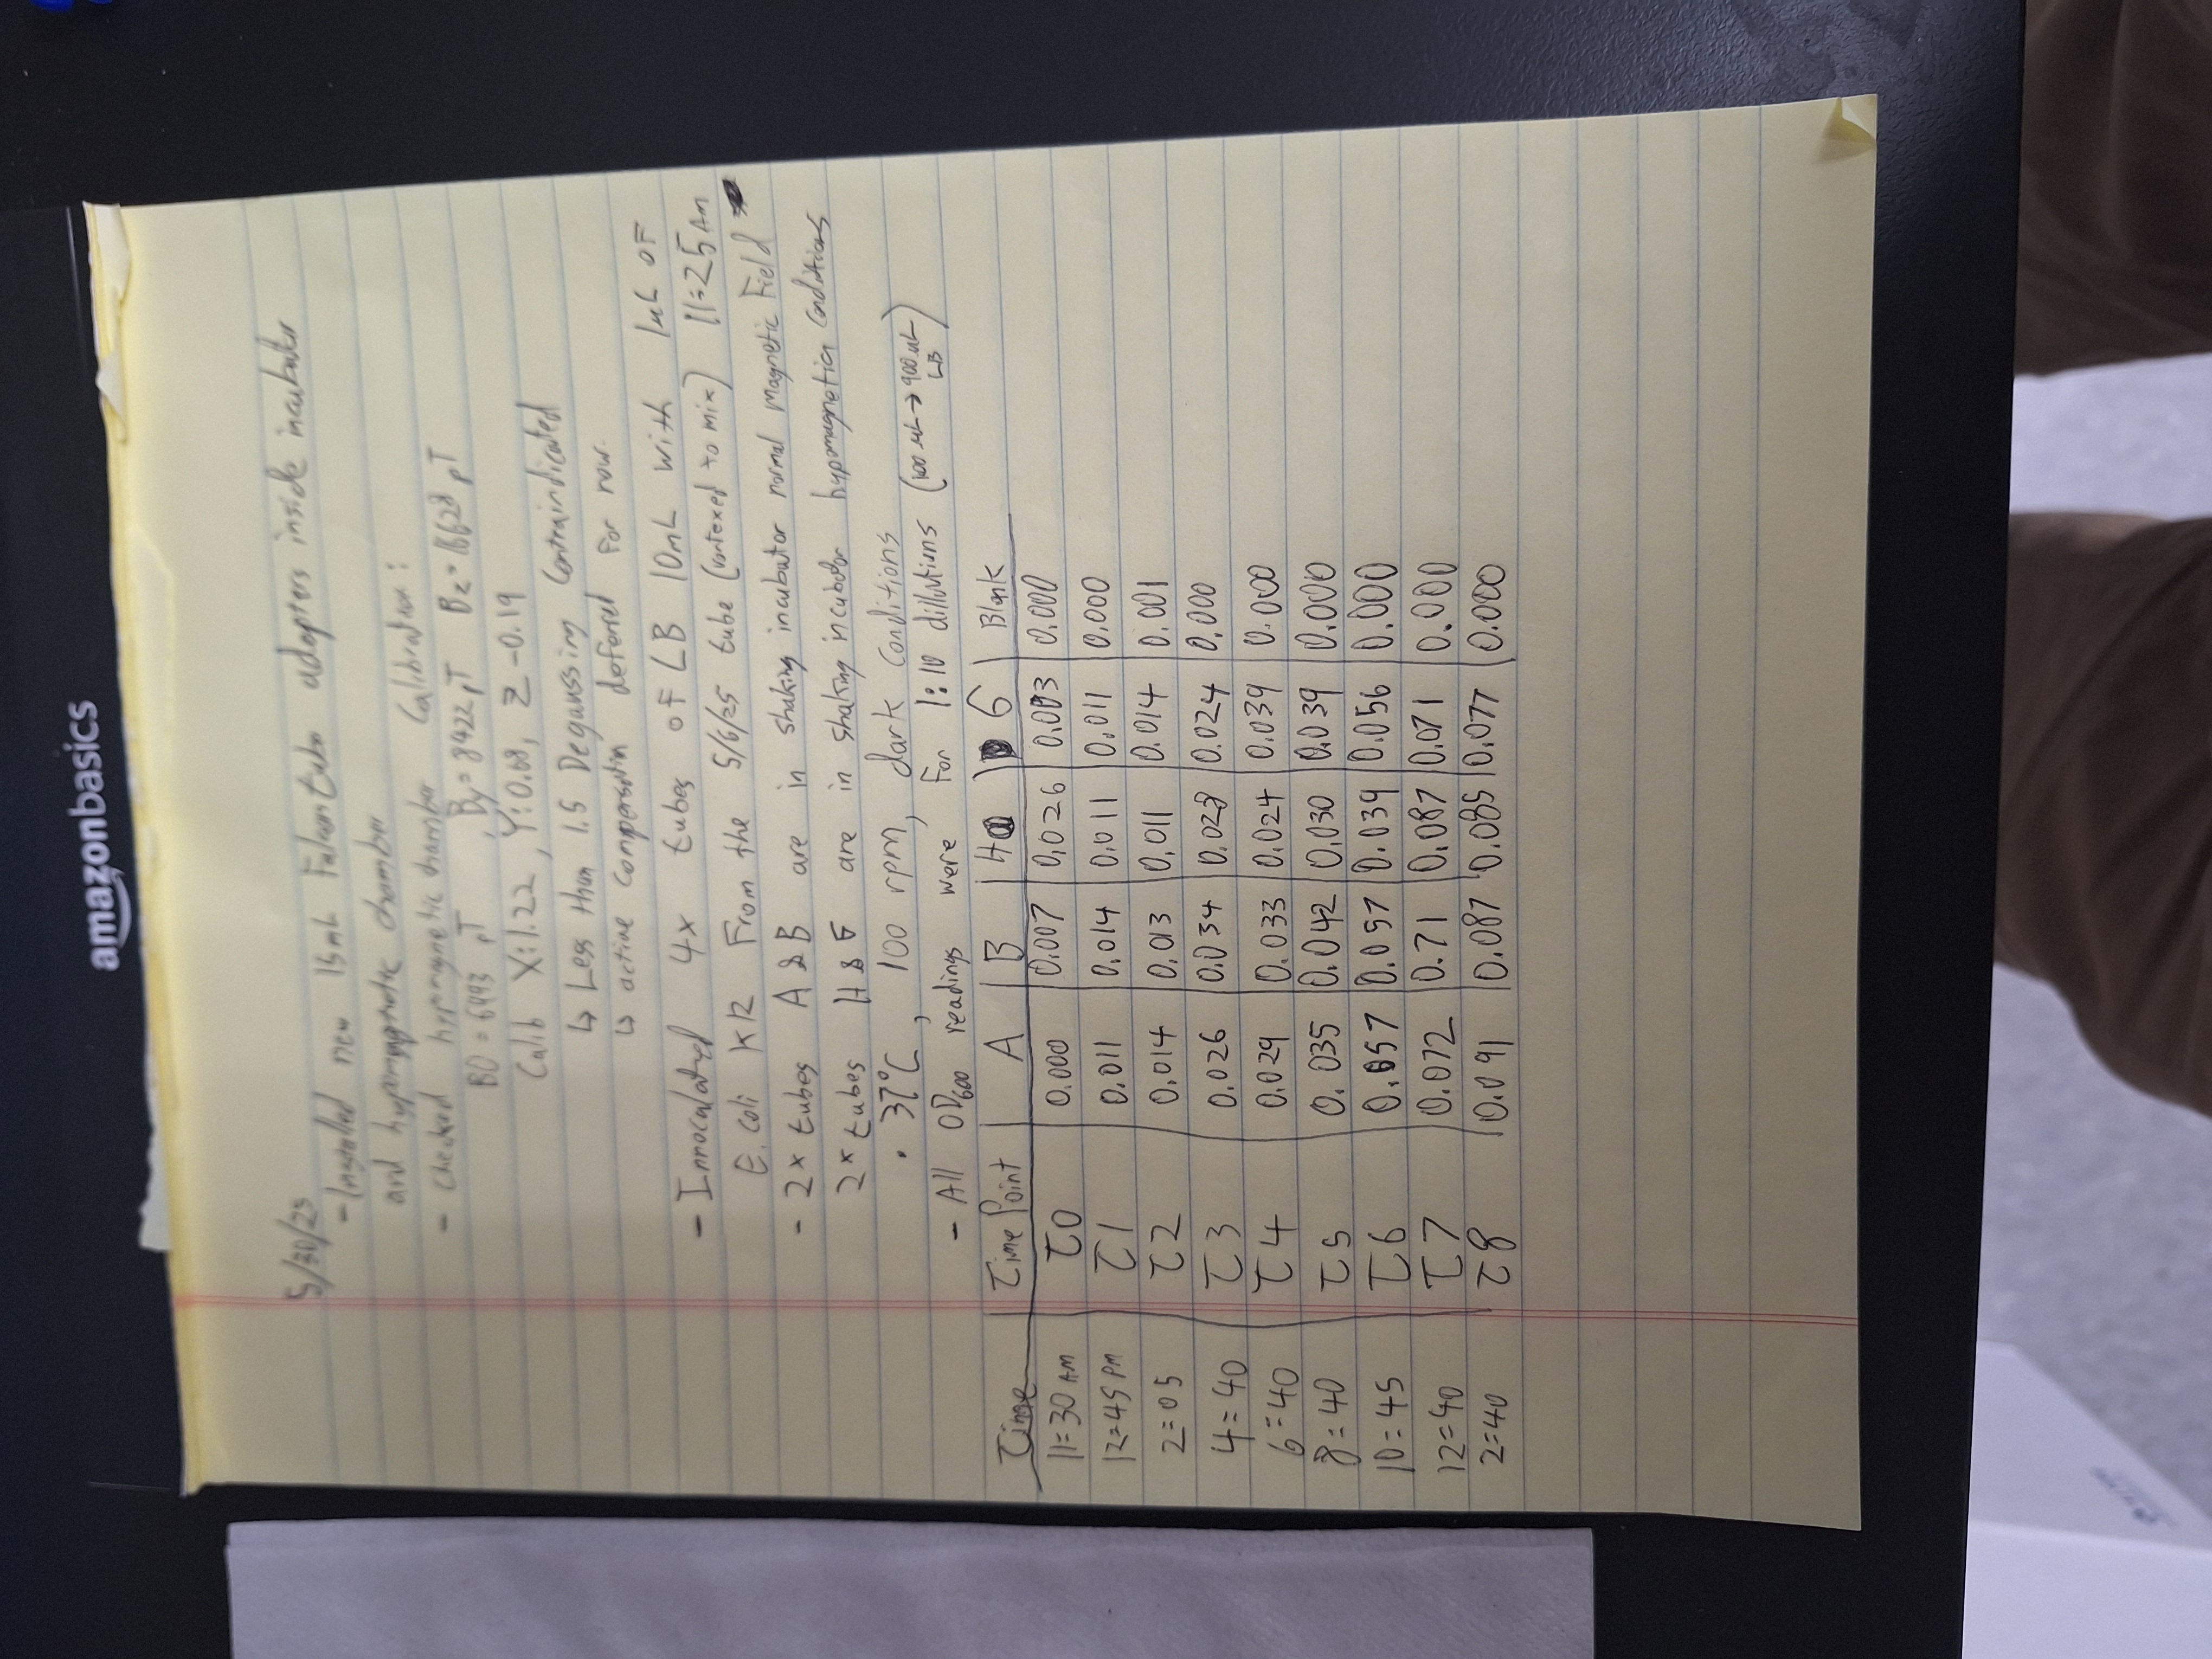 amazonbasics
5/30/25
- Installed new 15mL Falcon tube adapters inside incubator
and hypomagnetic chamber
- Checked hypomagnetic chamber Calibration:
B0 = 6493 pT , By = 8422 pT Bz = 16628 pT
Calib X: 1.22, Y: 0.68, Z -0.19
↳ Less than 1.5 Degaussing Contraindicated
↳ active compensation deferred for now.
- Innoculated 4x tubes of LB 10mL with 1uL of
E. coli K12 From the 5/6/25 tube (vortexed to mix) 11:25 AM
- 2x tubes A & B are in shaking incubator normal magnetic Field
2x tubes H & G are in shaking incubator hypomagnetic conditions
• 37°C, 100 rpm, dark conditions
- All OD600 readings were For 1:10 dillutions (100 uL → 900 uL LB)
Time Time Point A B H G Blank
11:30 AM T0 0.000 0.007 0.026 0.003 0.000
12:45 PM T1 0.011 0.014 0.011 0.011 0.000
2:05 T2 0.014 0.013 0.011 0.014 0.001
4:40 T3 0.026 0.034 0.028 0.024 0.000
6:40 T4 0.029 0.033 0.024 0.039 0.000
8:40 T5 0.035 0.042 0.030 0.039 0.000
10:45 T6 0.057 0.057 0.039 0.056 0.000
12:40 T7 0.072 0.71 0.087 0.071 0.000
2:40 T8 0.091 0.087 0.085 0.077 0.000